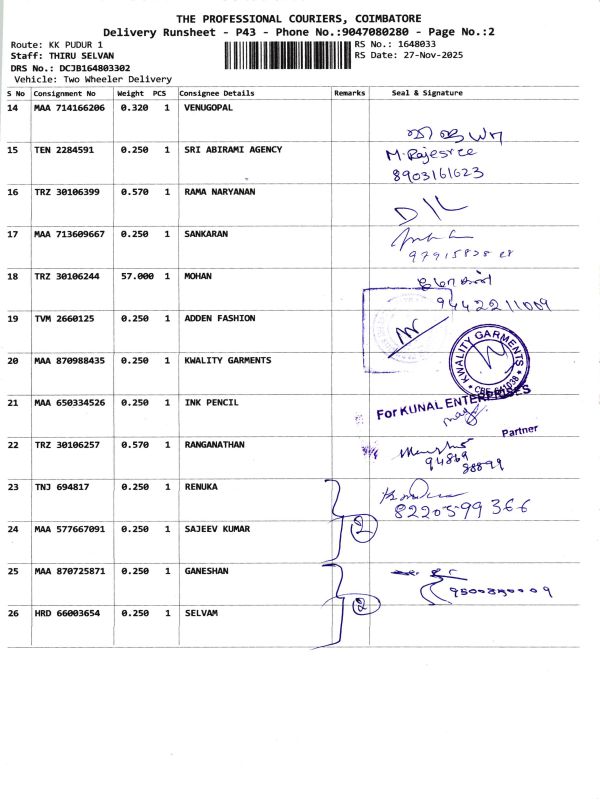 THE PROFESSIONAL COURIERS, COIMBATORE
Delivery Runsheet - P43 - Phone No.:9047080280 - Page No.:2
Route: KK PUDUR 1
RS No.: 1648033
Staff: THIRU SELVAN
RS Date: 27-Nov-2025
DRS No.: DCJB164803302
Vehicle: Two Wheeler Delivery
S No Consignment No Weight PCS Consignee Details Remarks Seal & Signature
14 MAA 714166206 0.320 1 VENUGOPAL
15 TEN 2284591 0.250 1 SRI ABIRAMI AGENCY M. Rajesree
8903161623
16 TRZ 30106399 0.570 1 RAMA NARYANAN
17 MAA 713609667 0.250 1 SANKARAN
18 TRZ 30106244 57.000 1 MOHAN
9442211009
19 TVM 2660125 0.250 1 ADDEN FASHION
20 MAA 870988435 0.250 1 KWALITY GARMENTS KWALITY GARMENTS
21 MAA 650334526 0.250 1 INK PENCIL For KUNAL ENTERPRISES
Partner
22 TRZ 30106257 0.570 1 RANGANATHAN
94869
98899
23 TNJ 694817 0.250 1 RENUKA
8220599366
24 MAA 577667091 0.250 1 SAJEEV KUMAR 2
25 MAA 870725871 0.250 1 GANESHAN
26 HRD 66003654 0.250 1 SELVAM 2